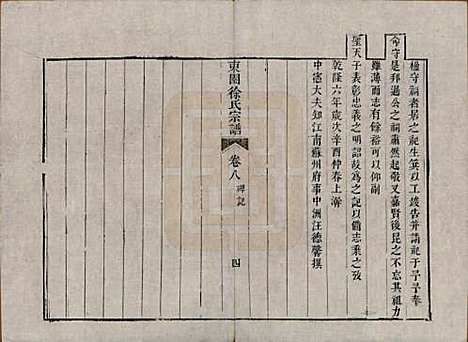 檢守祠者居之記生箕以工竣告并請記于予予奉
命守是邦過公之祠肅然起敬又嘉賢後昆之不忘其祖力
雖薄而志有餘裕可以仰副
聖天子表彰忠義之明詔故為之記以備志乘之攷
乾隆六年歲次辛酉仲春上澣
中憲大夫知江南蘇州府事中洲汪德馨撰
東園徐氏宗譜
卷八 碑記
四